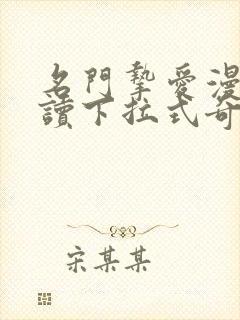 名門摯愛漫
讀下拉式奇
宋某某